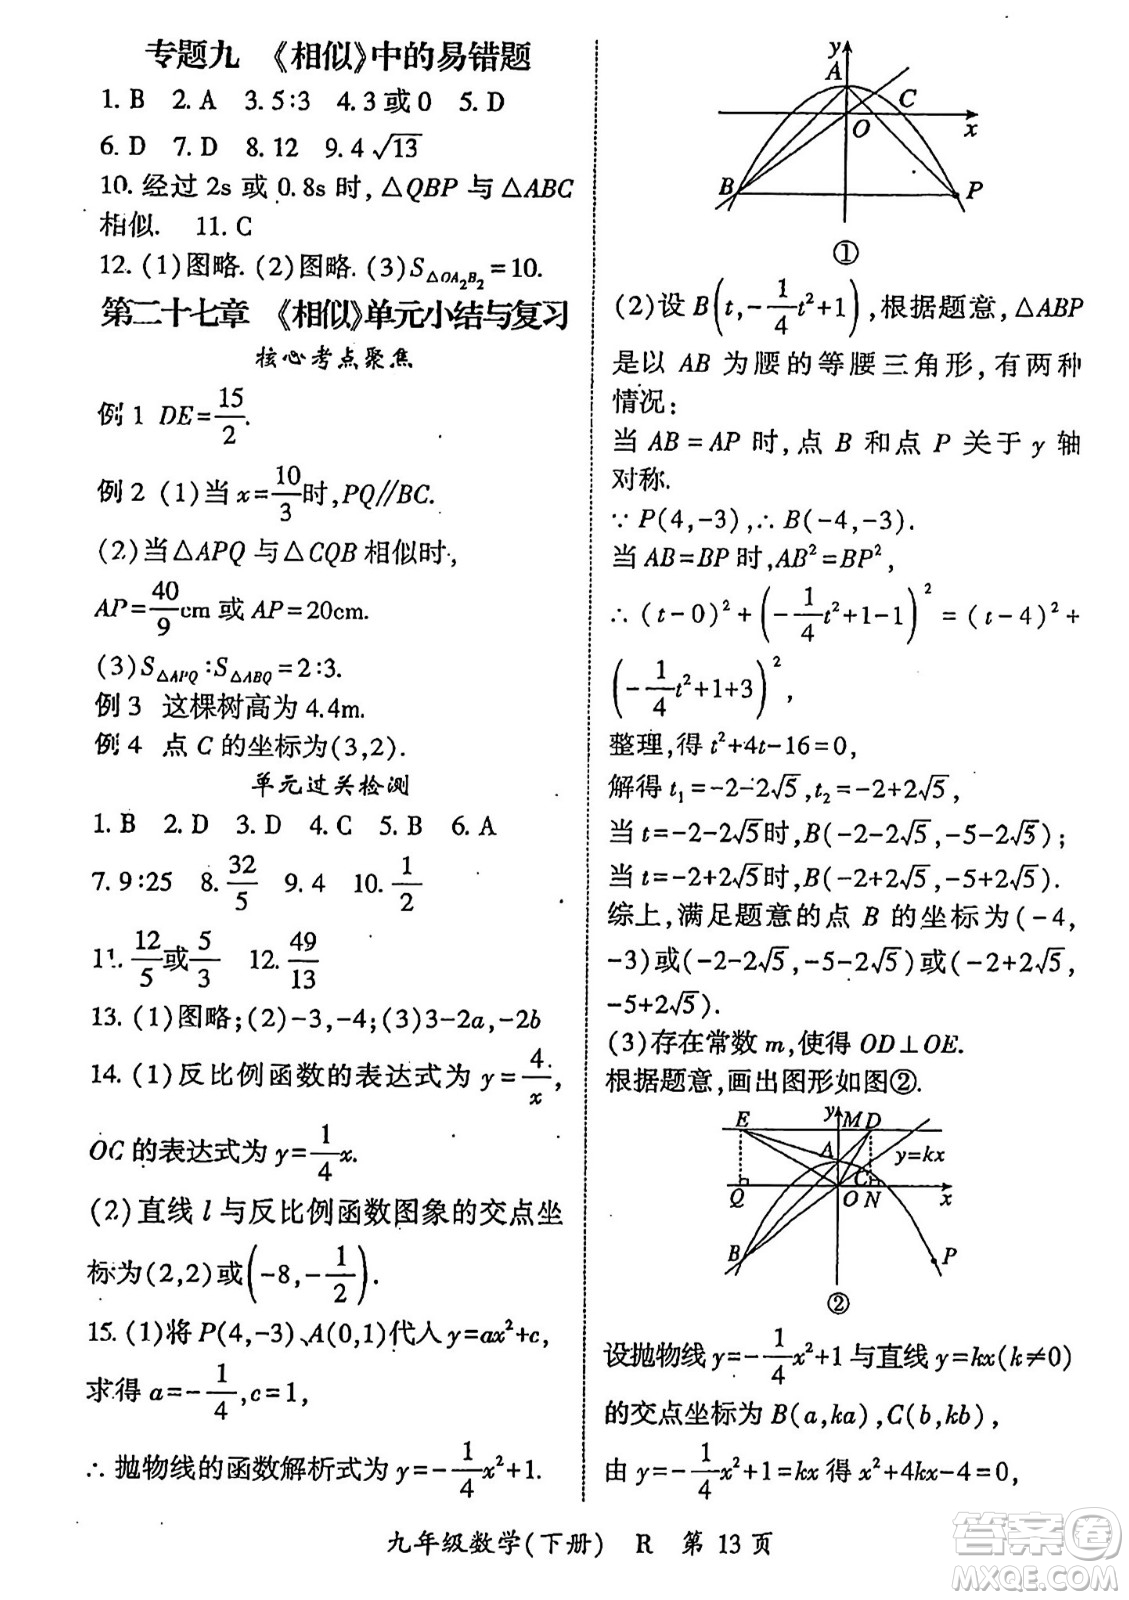 专题九 《相似》中的易错题
1. B 2. A 3. 5∶3 4. 3 或 0 5. D
6. D 7. D 8. 12 9. 4√13
10. 经过 2s 或 0.8s 时,△QBP 与△ABC
相似. 11. C
12. (1)图略. (2)图略. (3)S△OA₂B₂=10.
第二十七章 《相似》单元小结与复习
核心考点聚焦
例 1 DE=15/2.
例 2 (1)当 x=10/3时,PQ∥BC.
(2)当△APQ 与△CQB 相似时,
AP=40/9cm 或 AP=20cm.
(3)S△APQ∶S△ABQ=2∶3.
例 3 这棵树高为 4.4m.
例 4 点 C 的坐标为(3,2).
单元过关检测
1. B 2. D 3. D 4. C 5. B 6. A
7. 9∶25 8. 32/5 9. 4 10. 1/2
11. 12/5或5/3 12. 49/13
13. (1)图略;(2)-3,-4;(3)3-2a,-2b
14. (1)反比例函数的表达式为 y=4/x,
OC 的表达式为 y=1/4x.
(2)直线 l 与反比例函数图象的交点坐
标为(2,2)或(-8,-1/2).
15. (1)将 P(4,-3)、A(0,1)代入 y=ax²+c,
求得 a=-1/4,c=1,
∴ 抛物线的函数解析式为 y=-1/4x²+1.
y
A
C
O
x
B
P
①
(2)设 B(t,-1/4t²+1),根据题意,△ABP
是以 AB 为腰的等腰三角形,有两种
情况:
当 AB=AP 时,点 B 和点 P 关于 y 轴
对称.
∵ P(4,-3),∴ B(-4,-3).
当 AB=BP 时,AB²=BP²,
∴ (t-0)²+(-1/4t²+1-1)²=(t-4)²+
(-1/4t²+1+3)²,
整理,得 t²+4t-16=0,
解得 t₁=-2-2√5,t₂=-2+2√5,
当 t=-2-2√5时,B(-2-2√5,-5-2√5);
当 t=-2+2√5时,B(-2+2√5,-5+2√5).
综上,满足题意的点 B 的坐标为(-4,
-3)或(-2-2√5,-5-2√5)或(-2+2√5,
-5+2√5).
(3)存在常数 m,使得 OD⊥OE.
根据题意,画出图形如图②.
E
y
M
D
A
y=kx
C
Q
O
N
x
B
P
②
设抛物线 y=-1/4x²+1 与直线 y=kx(k≠0)
的交点坐标为 B(a,ka),C(b,kb),
由 y=-1/4x²+1=kx 得 x²+4kx-4=0,
九年级数学(下册) R 第 13 页
答案圈
MXQE.COM